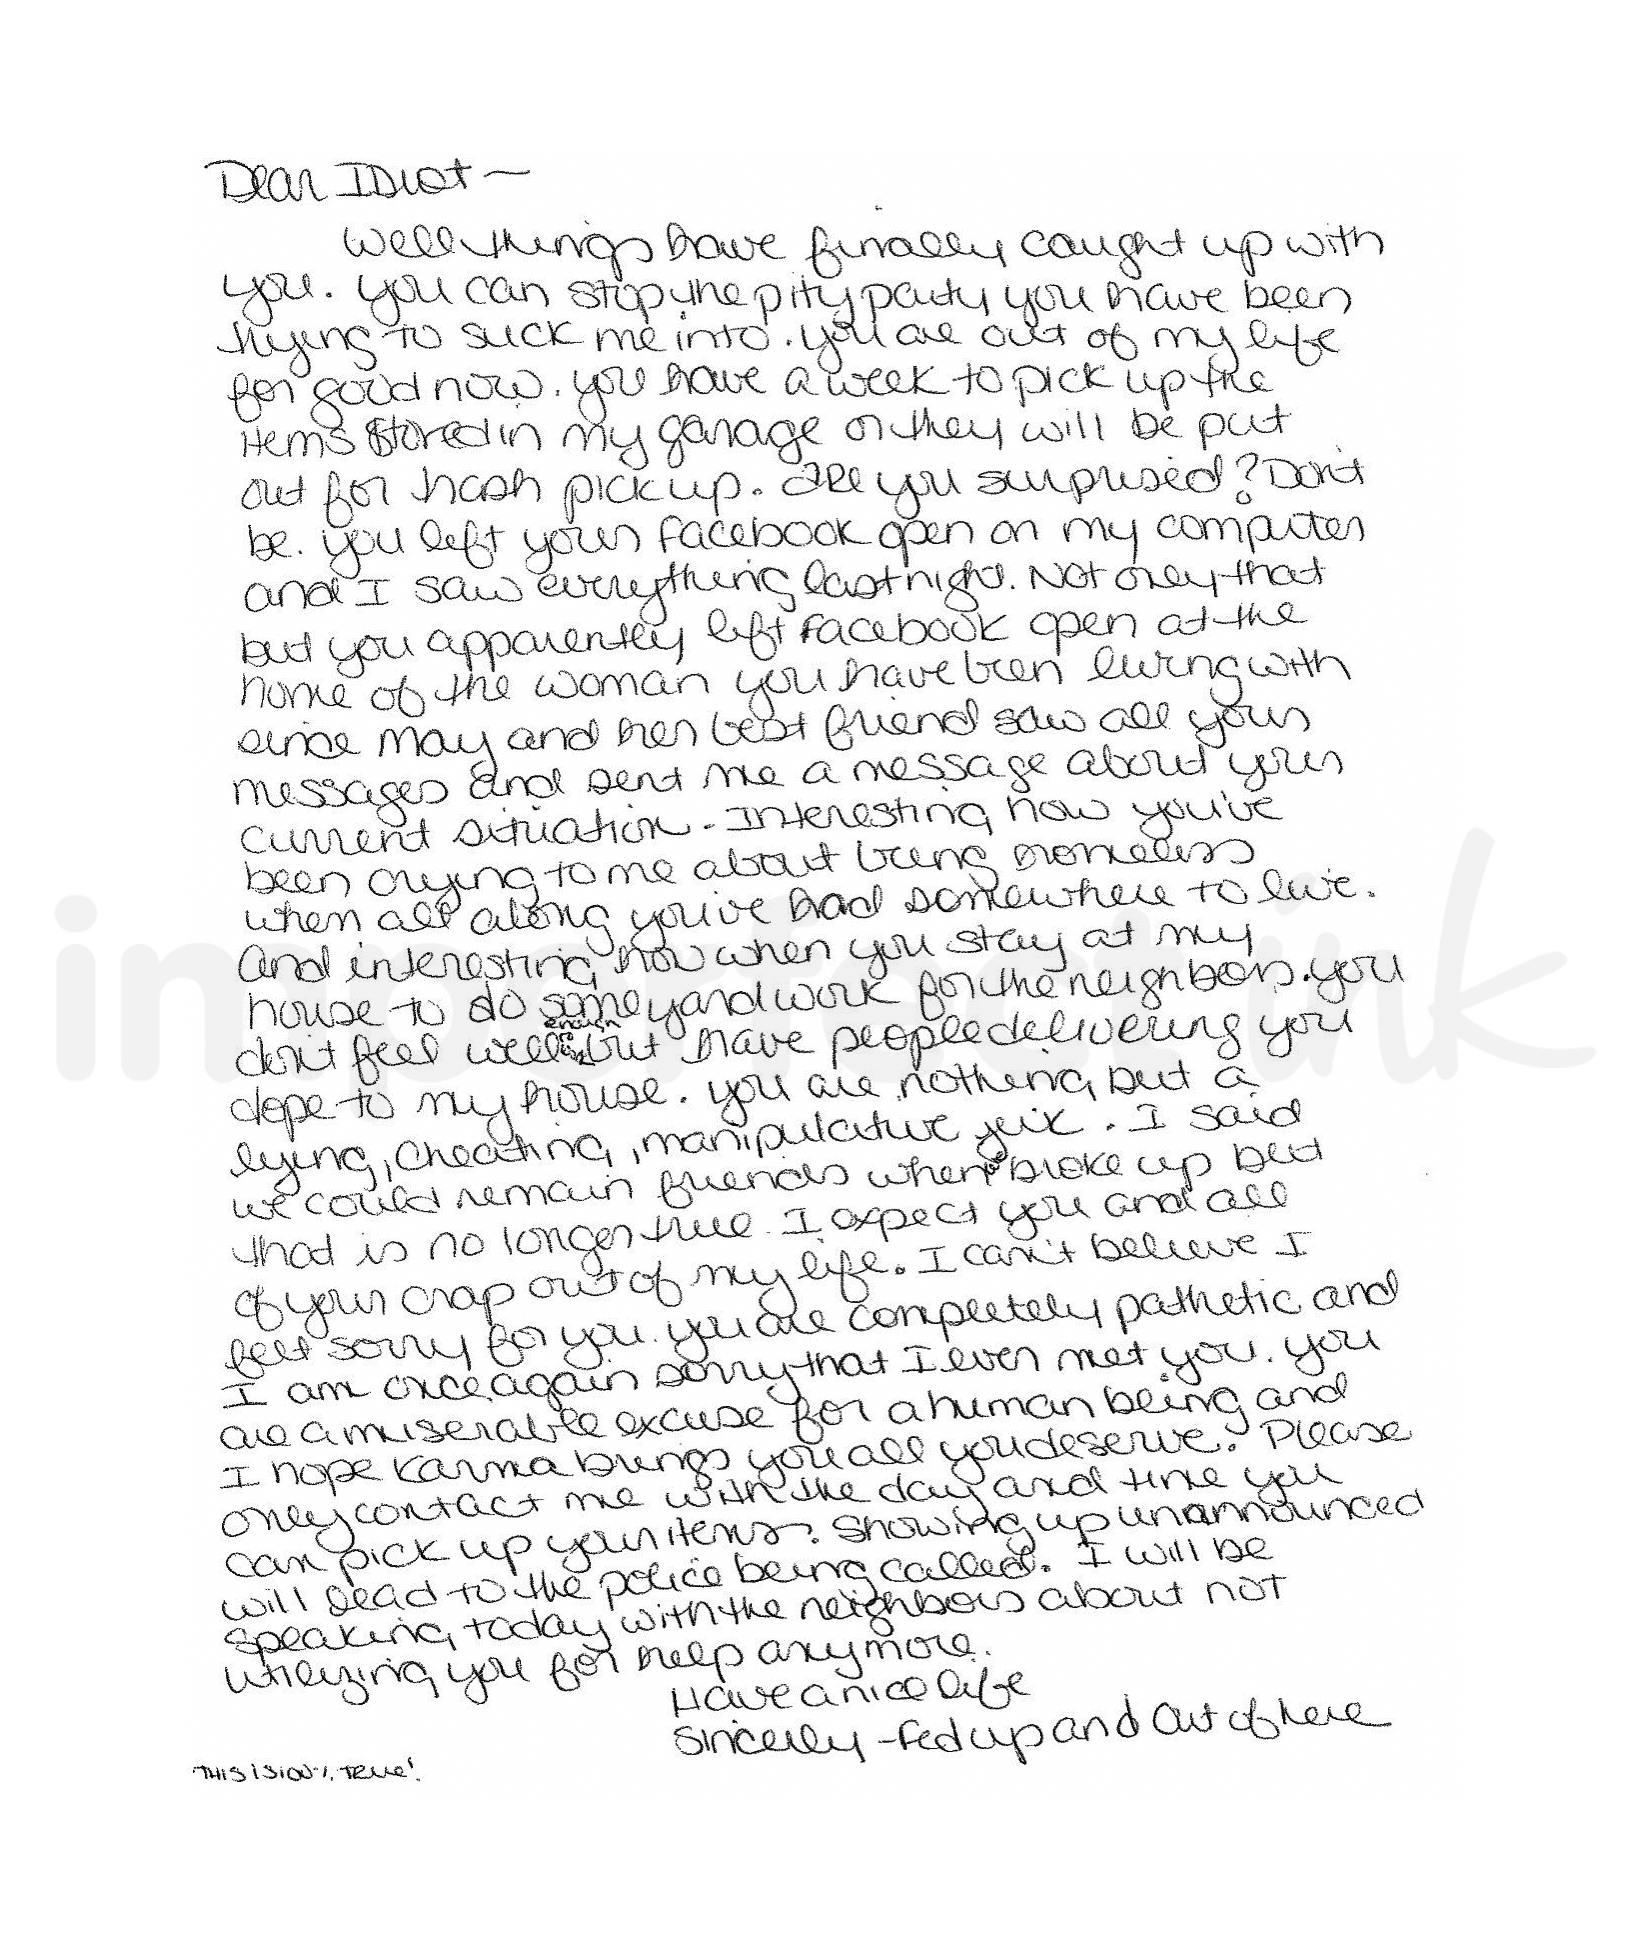 Dear Idiot —
Well things have finally caught up with
you. You can stop the pity party you have been
trying to suck me into. You are out of my life
for good now. You have a week to pick up the
items stored in my garage or they will be put
out for trash pick up. Are you surprised? Don't
be. You left your Facebook open on my computer
and I saw everything last night. Not only that
but you apparently left Facebook open at the
home of the woman you have been living with
since May and her best friend saw all your
messages and sent me a message about your
current situation. Interesting how you've
been crying to me about being homeless
when all along you've had somewhere to live.
And interesting how when you stay at my
house to do some yard work for the neighbors. you
don't feel well enough to work but have people delivering you
dope to my house. You are nothing but a
lying, cheating, manipulative jerk. I said
we could remain friends when we broke up but
that is no longer true. I expect you and all
of your crap out of my life. I can't believe I
felt sorry for you. You are completely pathetic and
I am once again sorry that I ever met you. You
are a miserable excuse for a human being and
I hope Karma brings you all you deserve. Please
only contact me with the day and time you
can pick up your items. Showing up unannounced
will lead to the police being called. I will be
speaking today with the neighbors about not
utilizing you for help anymore.
Have a nice life
Sincerely - Fed up and Out of here
THIS IS 100% TRUE!